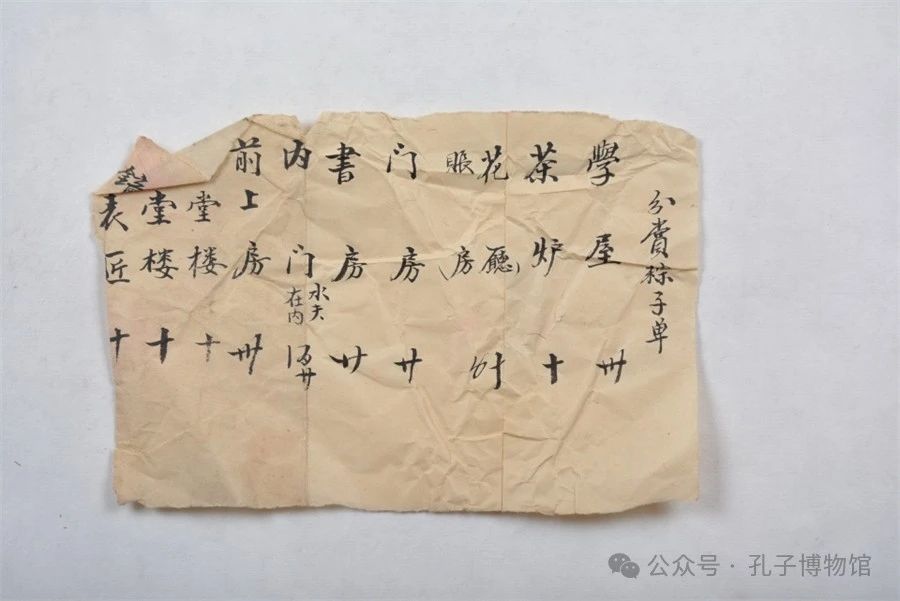 分賞粽子单
學屋 卅
茶炉 十
花廳
賬房
门房 廿
書房 廿
内门 水夫在内
前上房 卅
堂楼 十
堂楼 十
表匠 十
公众号 · 孔子博物馆